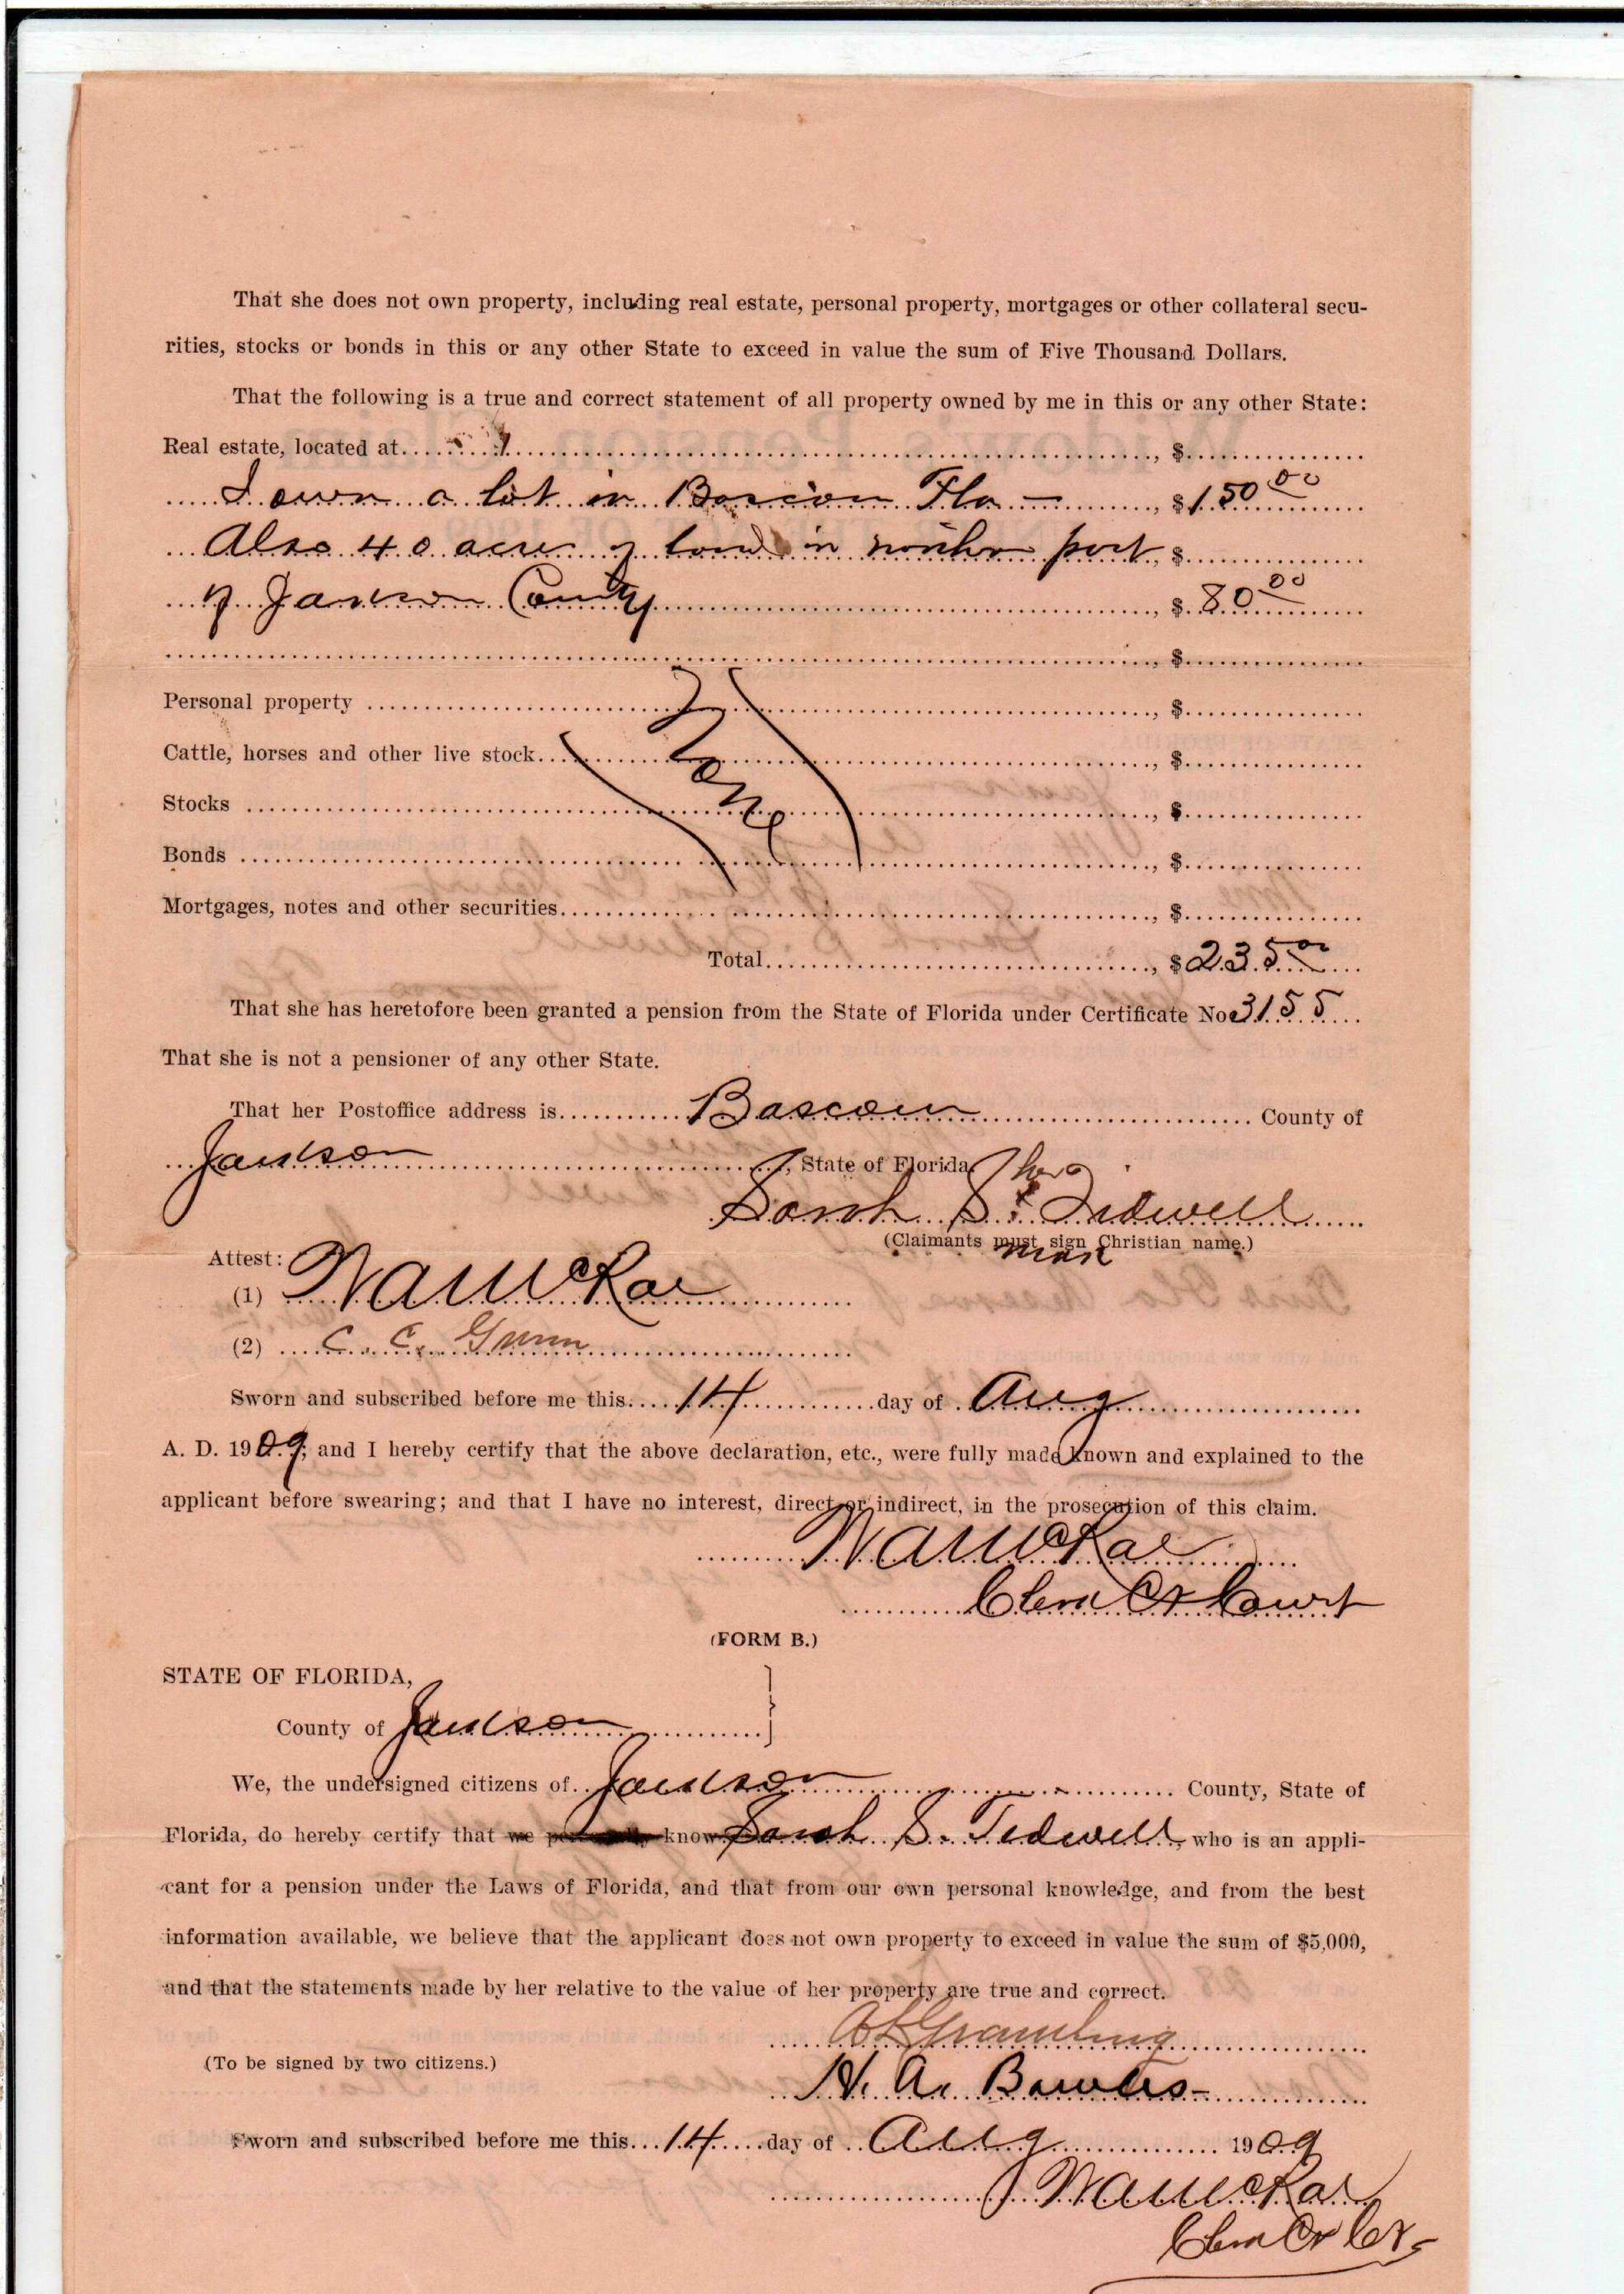 That she does not own property, including real estate, personal property, mortgages or other collateral secu-
rities, stocks or bonds in this or any other State to exceed in value the sum of Five Thousand Dollars.
That the following is a true and correct statement of all property owned by me in this or any other State:
Real estate, located at ..., $
I own a lot in Bascom Fla — , $150 00
Also 40 acres of land in northern part , $
of Jackson County , $ 80 00
, $
Personal property , $
Cattle, horses and other live stock , $
None
Stocks , $
Bonds , $
Mortgages, notes and other securities , $
Total , $ 235 00
That she has heretofore been granted a pension from the State of Florida under Certificate No 3155
That she is not a pensioner of any other State.
That her Postoffice address is Bascom County of
Jackson , State of Florida.
her
Sarah S. x Tidwell
(Claimants must sign Christian name.)
mark
Attest:
(1) W A McRae
(2) C. C. Gunn
Sworn and subscribed before me this 14 day of Aug
A. D. 1909; and I hereby certify that the above declaration, etc., were fully made known and explained to the
applicant before swearing; and that I have no interest, direct or indirect, in the prosecution of this claim.
W A McRae
Clerk Ct Court
(FORM B.)
STATE OF FLORIDA,
County of Jackson
We, the undersigned citizens of Jackson County, State of
Florida, do hereby certify that we personally know Sarah S. Tedwell, who is an appli-
cant for a pension under the Laws of Florida, and that from our own personal knowledge, and from the best
information available, we believe that the applicant does not own property to exceed in value the sum of $5,000,
and that the statements made by her relative to the value of her property are true and correct.
(To be signed by two citizens.)
H. A. Bowles
Sworn and subscribed before me this 14 day of Aug 1909
W A McRae
Clerk Cr Ct